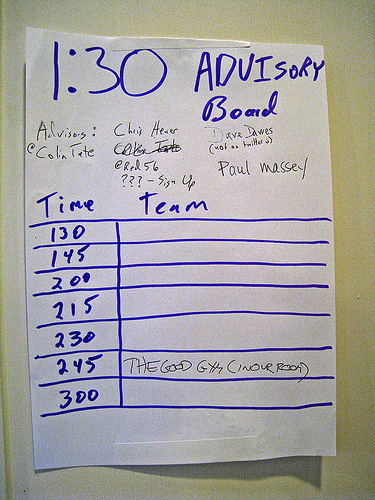 1:30 ADVISORY
Board
Advisors: Chris Heuer Dave Dawes
@ColinTate (not on twitter)
@Red56 Paul Massey
??? - Sign Up
Time Team
130
145
200
215
230
245 THE GOOD GYM (IN OUR ROOM)
300